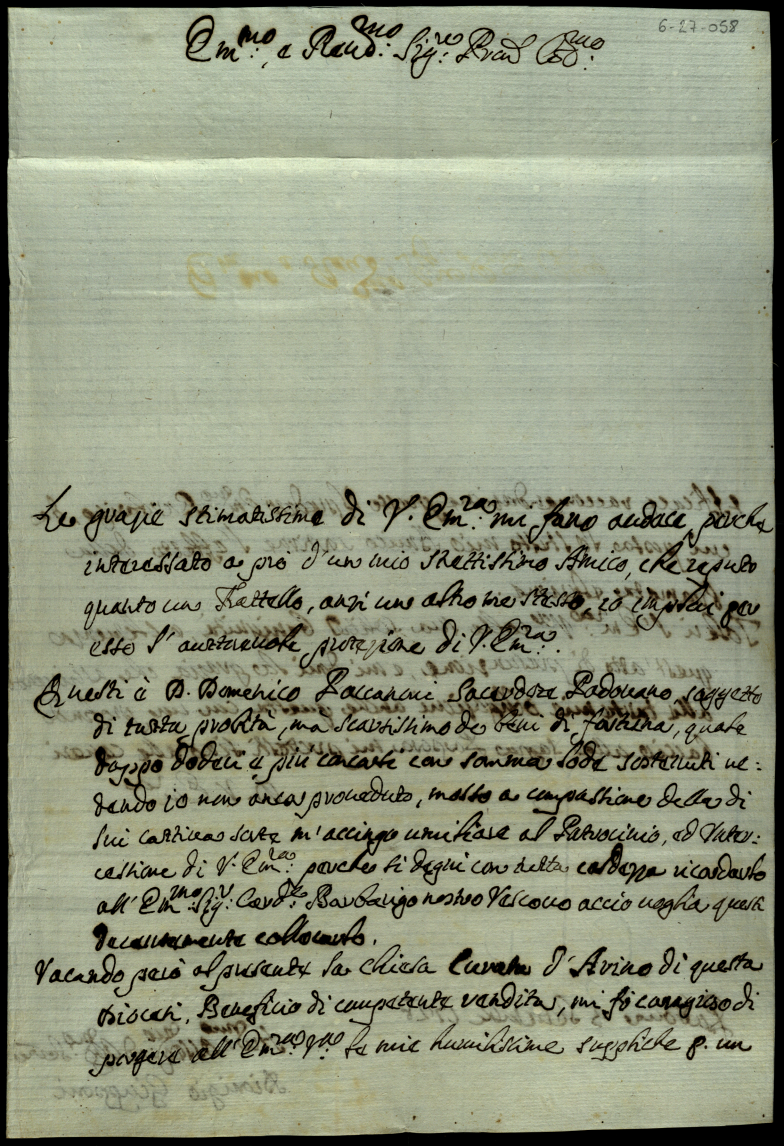 6-27-058
Em.mo, e Reud.mo Sig.re Pron Col.mo
Le grazie stimatissime di V. Em.za mi fano audace, perche
interessato a prò d'un mio strettissimo Amico, che reputo
quanto un Frattello, anzi un altro me stesso, io implori per
esso l'auttoreuole protezione di V. Em.za.
Questi è D. Domenico Paccanaui Sacerdote Padouano, soggetto
di tutta probità, ma scarsissimo de beni di fortuna, quale
doppo dodeci e più concorsi con somma lode sostenuti ue:
dendo io non anco proueduto, mosso a compassione della di
lui cattiua sorte m'accingo umiliare al Patrocinio, ed Inter:
cessione di V. Em.za perche si degni con tutta caldezza ricordarlo
all'Em.mo Sig.r Card.le Barbarigo nostro Vescouo acciò uoglia questi
decentemente collocarlo.
Vacando però al presente la Chiesa Curata d'Arino di questa
Diocesi, Beneficio di competente rendita, mi fò coraggioso di
porgere all'Em.za V.ra le mie humilissime suppliche p. un